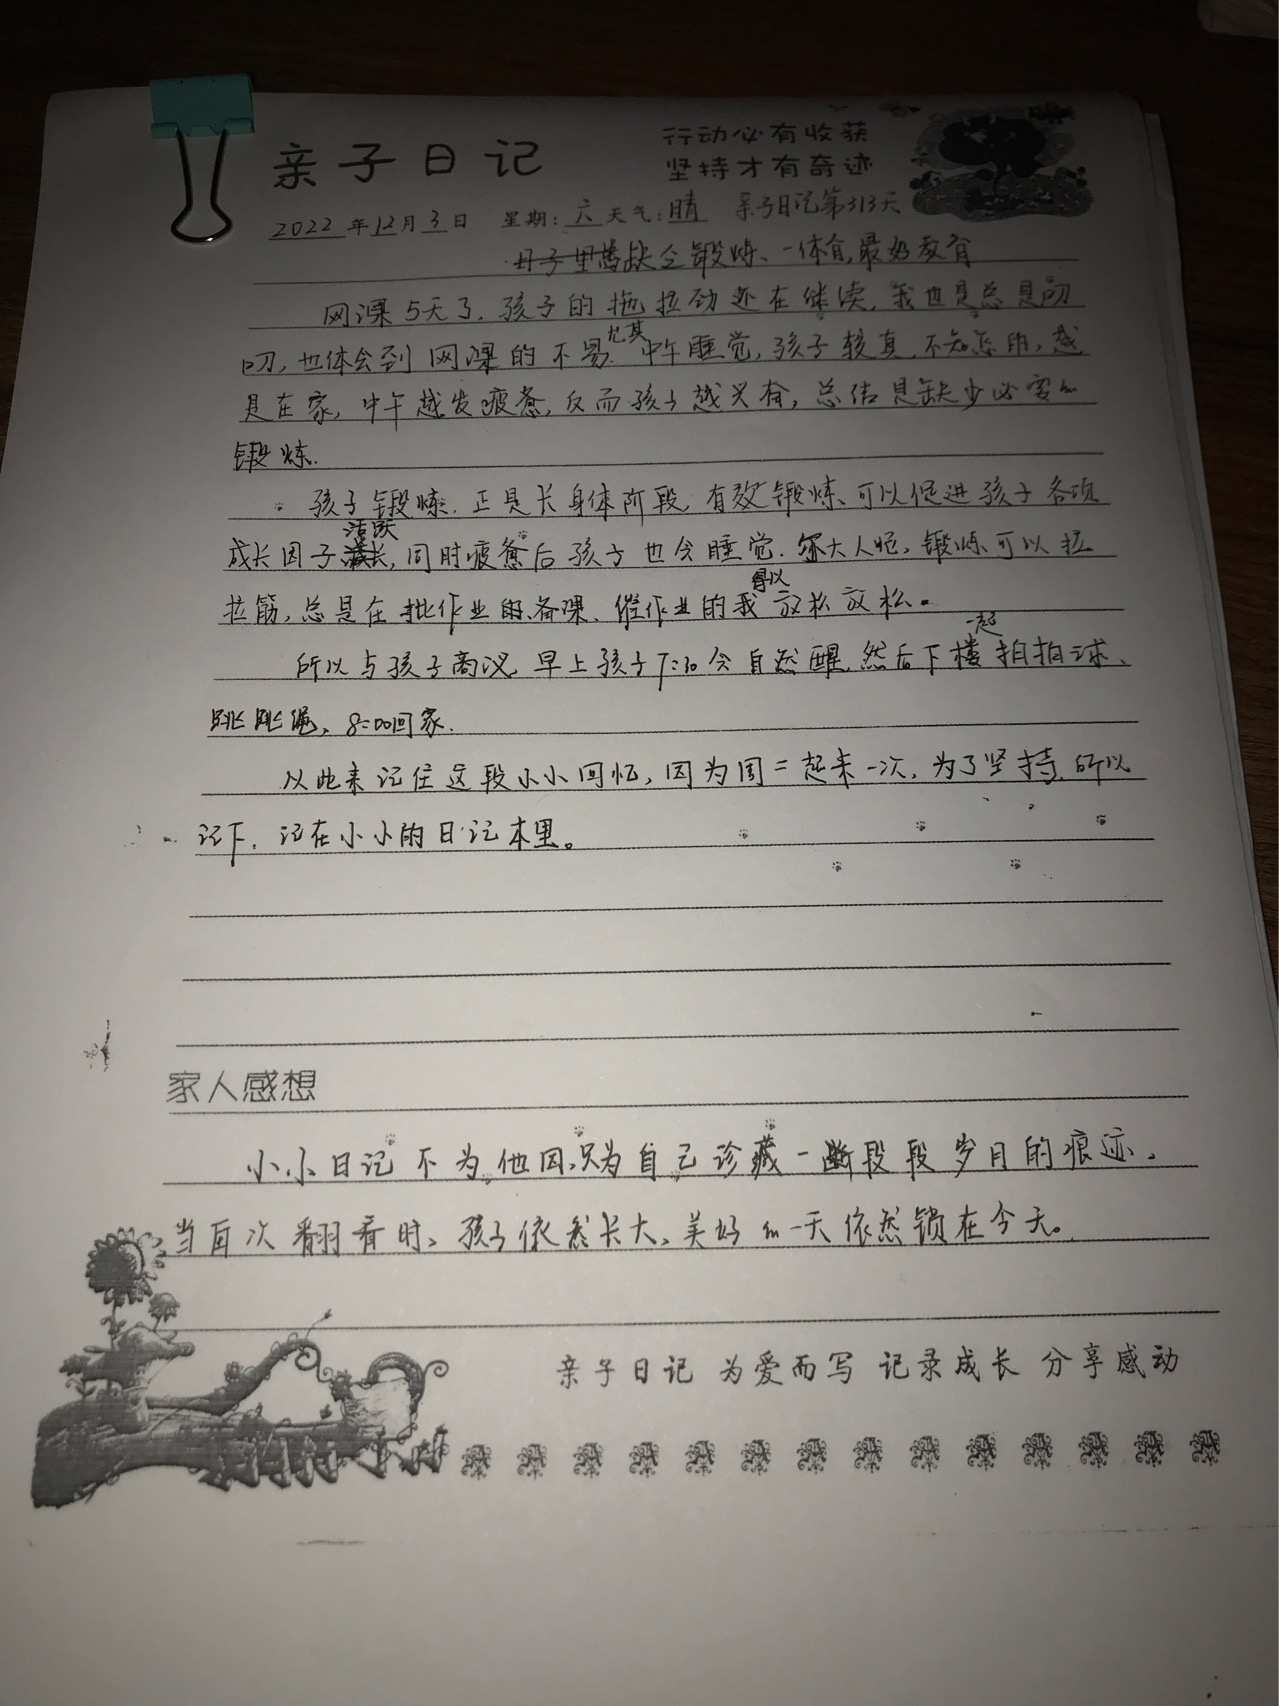 亲子日记
行动必有收获
坚持才有奇迹
2022年12月3日 星期:六 天气:晴 亲子日记第313天
锻炼、一体育,最好教育
网课5天了,孩子的拖拉劲还在继续,我也是总是叨
叨,也体会到网课的不易.尤其中午睡觉,孩子较真,不知怎的,越
是在家,中午越发疲惫,反而孩子越兴奋,总结是缺少必要的
锻炼.
孩子锻炼.正是长身体阶段,有效锻炼、可以促进孩子各项
成长因子活跃,同时疲惫后孩子也会睡觉.大人呢,锻炼可以拉
拉筋,总是在批作业的、备课、催作业的我得以放松放松。
所以与孩子商议,早上孩子7:30会自然醒,然后下楼一起拍拍球、
跳跳绳,8:00回家.
以此来记住这段小小回忆,因为周二起来一次,为了坚持,所以
记下,记在小小的日记本里。
家人感想
小小日记不为他因,只为自己珍藏一段段岁月的痕迹,
当再次翻看时,孩子依然长大,美好的一天依然锁在今天。
亲子日记 为爱而写 记录成长 分享感动